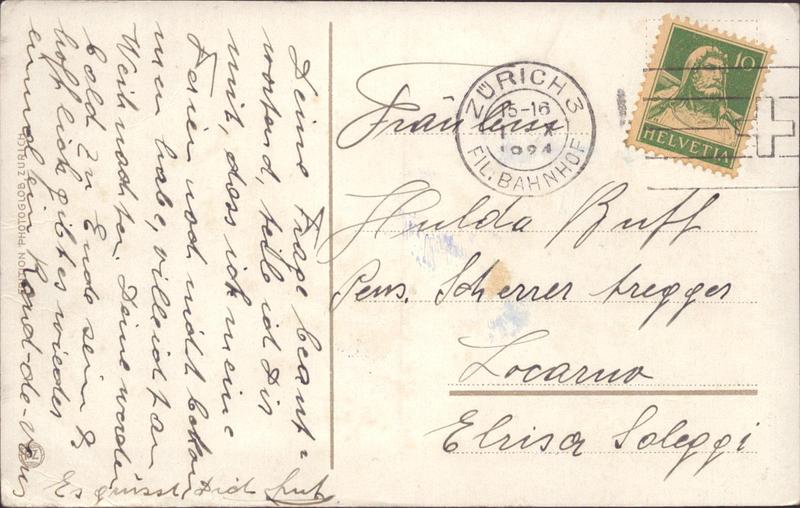 Deine Frage beant=
wortend, teile ich Dir
mit, dass ich meine
Ferien noch nicht bekom
men habe, villeicht an
Weihnachten. Deine werden
bald zu Ende sein &
hofftlich gibt es wieder
einmal ein Rend-de-Vous
Es grüsst Dich
EDITION PHOTOGLOB, ZÜRICH
PZ
ZÜRICH 3
15-16
1924
FIL. BAHNHOF
10
HELVETIA
Fräulein
Hulda Buff
Pens. Scherrer tregger
Locarno
Elrisa Soleggi